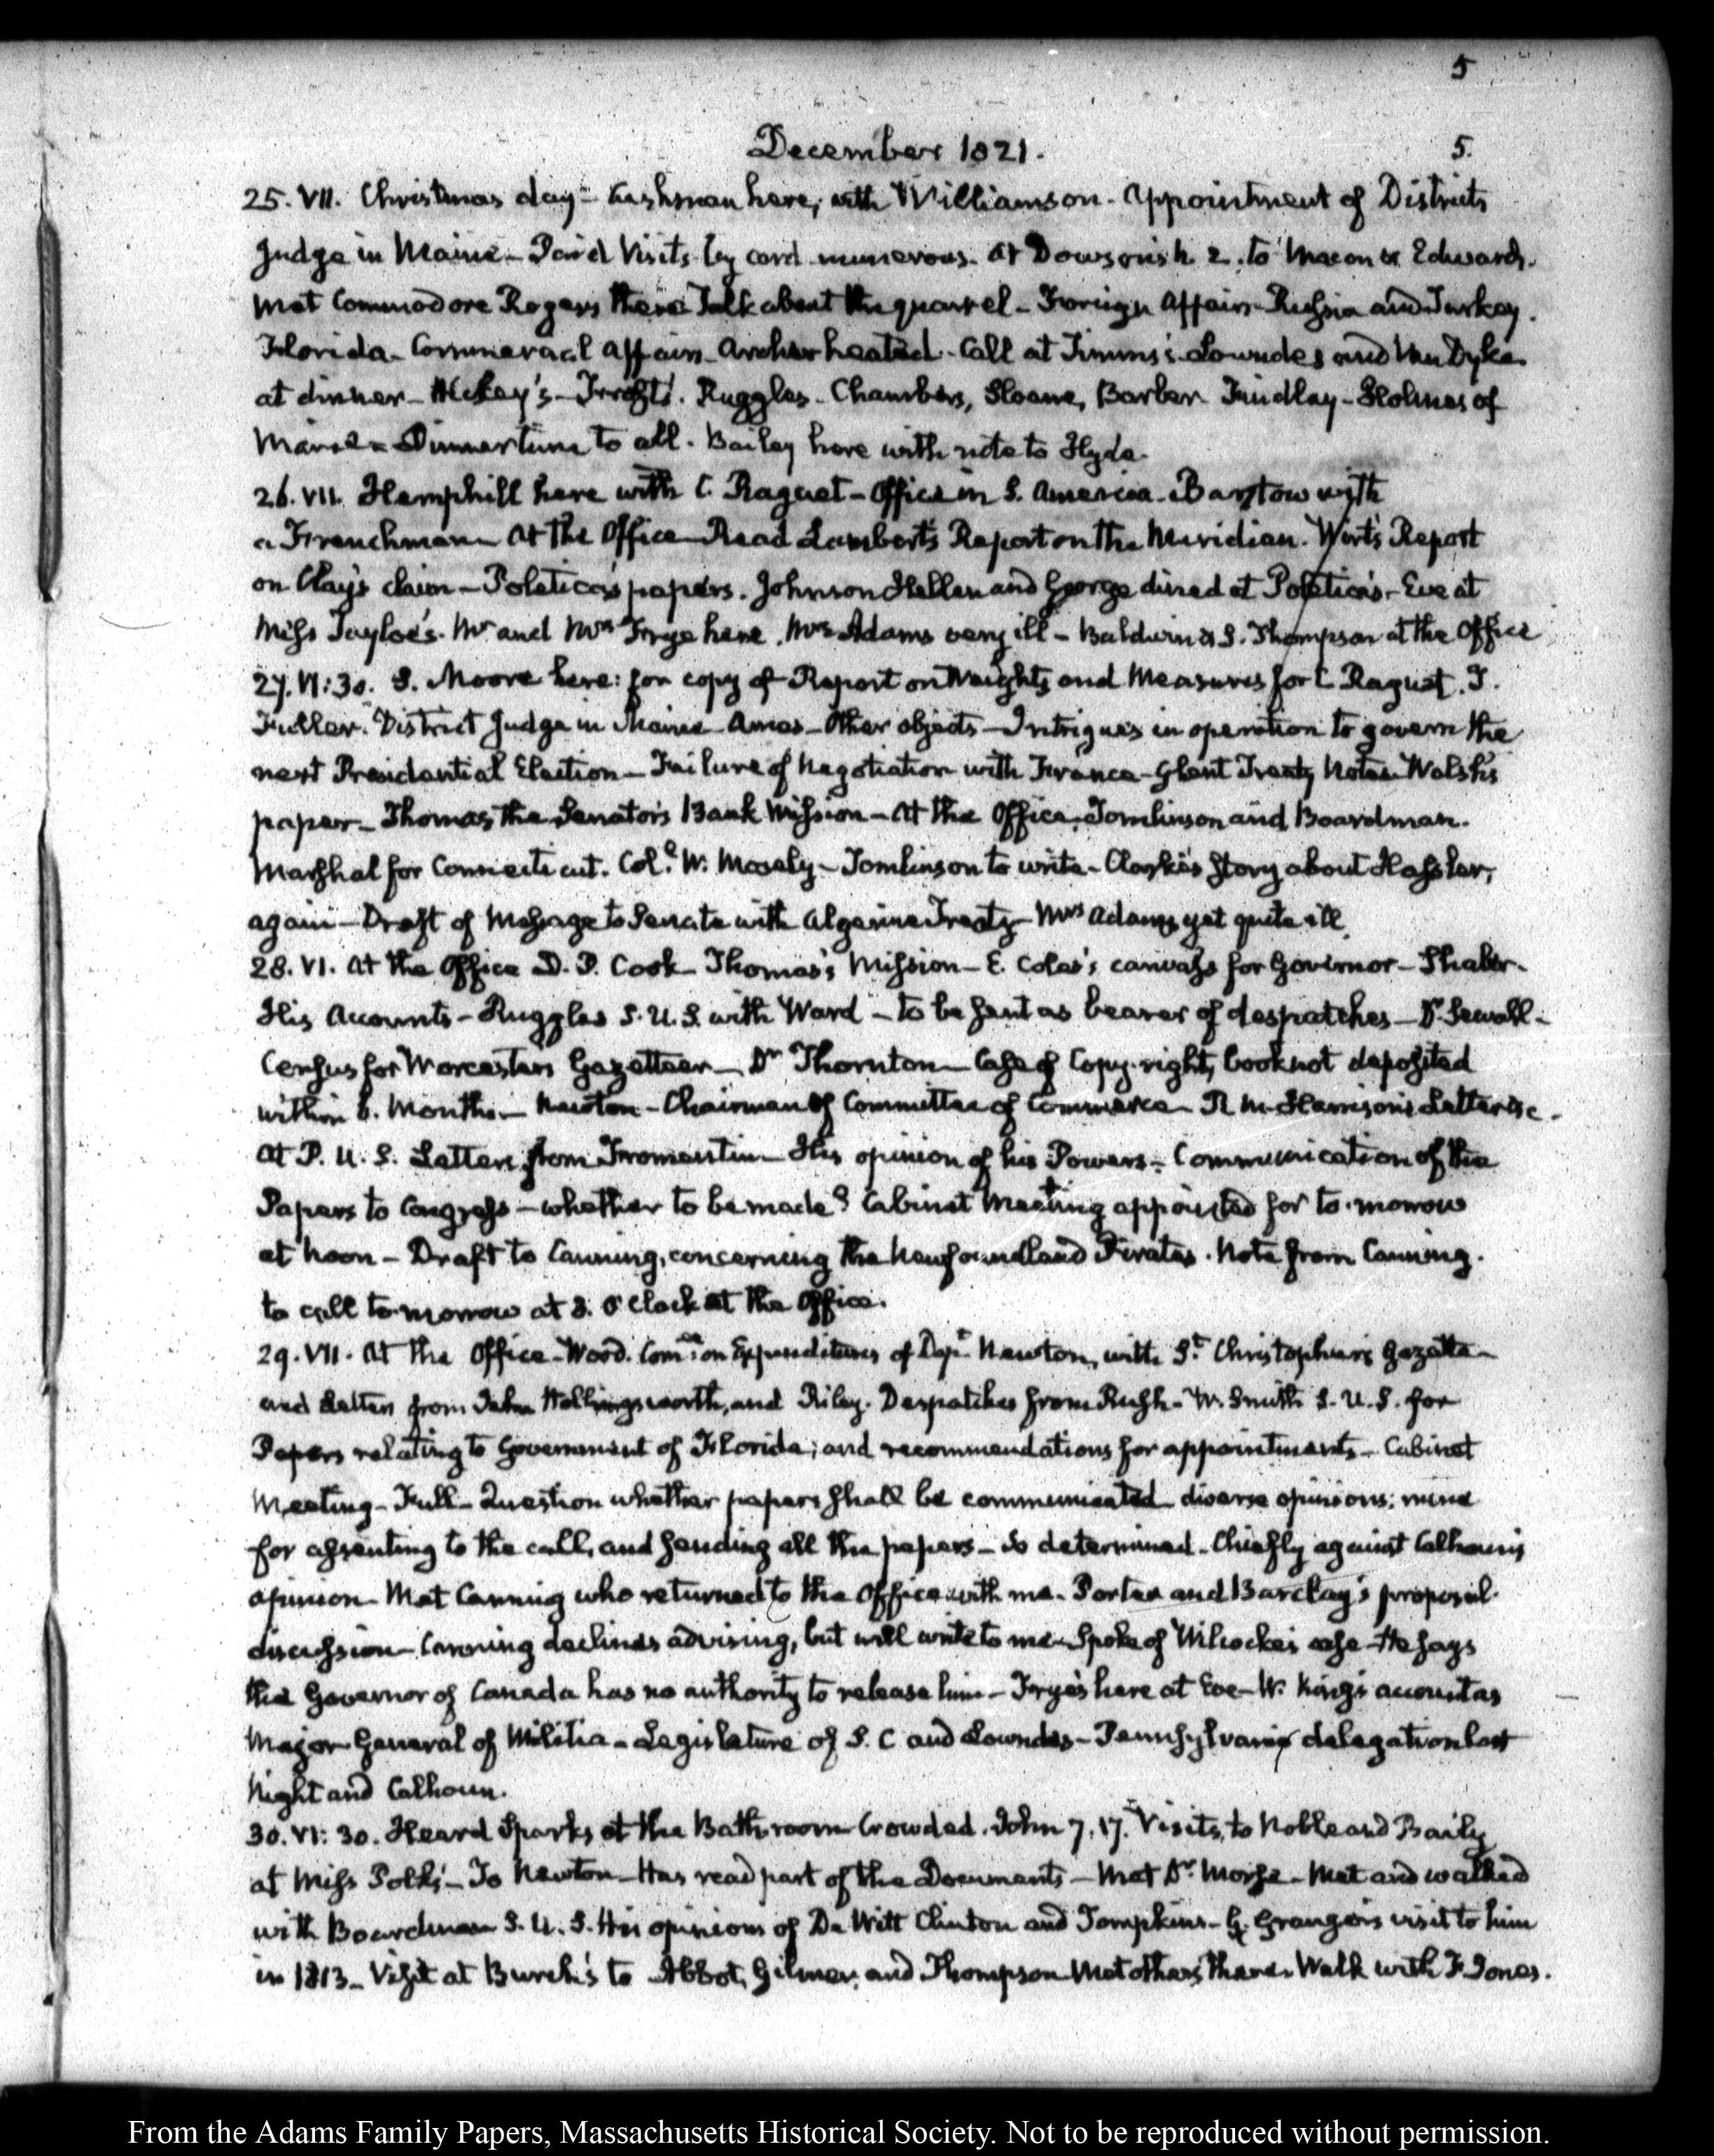 5
December 1821.
5.
25. VII. Christmas day – Cushman here, with Williamson – Appointment of District
Judge in Maine – Paid Visits by card numerous. At Dowson's N. 2. to Macon & Edwards.
Met Commodore Rogers there Talk about the quarrel – Foreign Affairs – Russia and Turkey.
Florida – Commercial Affairs – Archer heated – Call at Timms's. Lowndes and Van Dyke
at dinner – Hickey's – Ruggles – Chambers, Sloane, Barber Findlay – Holmes of
Maine – Dinner time to all. Bailey here with note to Hyde.
26. VII. Hemphill here with C. Raguet – Office in S. America – Barstow with
a Frenchman – At the Office – Read Lambert's Report on the Meridian. Wirt's Report
on Clay's claim – Poletica's papers. Johnson Hellen and George dined at Poletica's – Eve at
Miss Tayloe's. Mr and Mrs Frye here. Mrs Adams very ill – Baldwin & S. Thompson at the Office
27. VI:30. S. Moore here: for copy of Report on Weights and Measures for C. Raguet. T.
Fuller. District Judge in Maine – Ames – Other objects – Intrigues in operation to govern the
next Presidential Election – Failure of Negotiation with France – Ghent Treaty Notes – Walsh's
paper – Thomas, the Senator's Bank Mission – At the Office, Tomlinson and Boardman.
Marshal for Connecticut. Col. W. Mosely – Tomlinson to write – Clarke's story about Hassler,
again – Draft of Message to Senate with Algerine Treaty – Mrs Adams yet quite ill.
28. VI. At the Office D. P. Cook – Thomas's Mission – E. Coles's canvass for Governor – Shaler.
His Accounts – Ruggles S.U.S. with Ward – to be sent as bearer of despatches – Dr. Sewall.
Census for Worcester's Gazetteer – Dr Thornton – Case of Copy-right, book not deposited
within 6. Months – Newton – Chairman of Committee of Commerce – R. M. Harrison's Letter &c.
At P. U. S. Letters from Fromentin – His opinion of his Powers – Communication of the
Papers to Congress – whether to be made? Cabinet Meeting appointed for to-morrow
at Noon – Draft to Canning, concerning the Newfoundland Pirates. Note from Canning.
to call to-morrow at 3. O'Clock at the Office.
29. VII. At the Office – Wood. Com.ee on Expenditures of Dept. Newton, with St. Christopher's Gazette
and Letters from John Hollingsworth, and Riley. Despatches from Rush – W. Smith S.U.S. for
Papers relating to Government of Florida; and recommendations for appointments – Cabinet
Meeting – Full – Question whether papers shall be communicated – diverse opinions: mine
for assenting to the call, and sending all the papers – So determined – Chiefly against Calhoun's
opinion – Met Canning who returned to the Office with me – Porter and Barclay's proposal.
discussion – Canning declines advising, but will write to me – Spoke of Wilcocks's case – He says
the Governor of Canada has no authority to release him – Frye's here at Eve – W. King's account as
Major General of Militia – Legislature of S. C and Lowndes – Pennsylvania delegation last
Night and Calhoun.
30. VI:30. Heard Sparks at the Bath-room – Crowded. John 7.17. Visits, to Noble and Baily
at Miss Polk's – To Newton – Has read part of the Documents – Met Dr. Morse – Met and walked
with Boardman S.U.S. His opinions of De Witt Clinton and Tompkins – G. Granger's visit to him
in 1813 – Visit at Burch's to Abbot, Gilmer, and Thompson – Met others there – Walk with F. Jones.
From the Adams Family Papers, Massachusetts Historical Society. Not to be reproduced without permission.